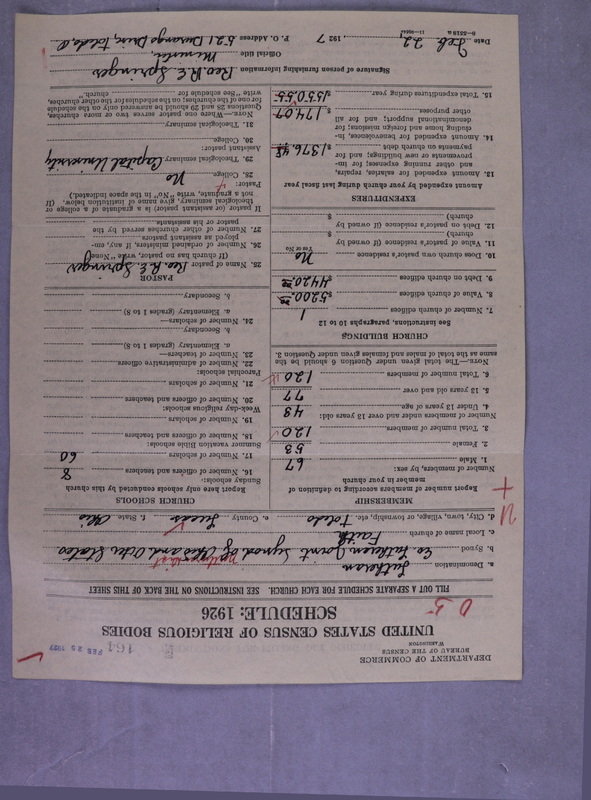 DEPARTMENT OF COMMERCE
BUREAU OF THE CENSUS
WASHINGTON
164
FEB 25 1927
UNITED STATES CENSUS OF RELIGIOUS BODIES
SCHEDULE: 1926
FILL OUT A SEPARATE SCHEDULE FOR EACH CHURCH. SEE INSTRUCTIONS ON THE BACK OF THIS SHEET
a. Denomination Lutheran
b. Synod Ev. Lutheran Joint Synod of Ohio and Other States
c. Local name of church Faith
d. City, town, village, or township, etc. Toledo e. County Lucas f. State Ohio
MEMBERSHIP
Report number of members according to definition of
member in your church
Number of members, by sex:
1. Male 67
2. Female 53
3. Total number of members. 120
Number of members under and over 13 years old:
4. Under 13 years of age. 43
5. 13 years old and over 77
6. Total number of members 120
NOTE.—The total given under Question 6 should be the
same as the total of males and females given under Question 3.
CHURCH BUILDINGS
See instructions, paragraphs 10 to 12
7. Number of church edifices 1
8. Value of church edifices $5200.00
9. Debt on church edifices $4420.00
10. Does church own pastor's residence No
Yes or No
11. Value of pastor's residence (if owned by
church) $
12. Debt on pastor's residence (if owned by
church) $
EXPENDITURES
Amount expended by your church during last fiscal year
13. Amount expended for salaries, repairs,
and other running expenses; for im-
provements or new buildings; and for
payments on church debt $1376.48
14. Amount expended for benevolences, in-
cluding home and foreign missions; for
denominational support; and for all
other purposes. 174.07
15. Total expenditures during year. 1550.55
CHURCH SCHOOLS
Report here only schools conducted by this church
Sunday schools:
16. Number of officers and teachers 8
17. Number of scholars 60
Summer vacation Bible schools:
18. Number of officers and teachers
19. Number of scholars
Week-day religious schools:
20. Number of officers and teachers
21. Number of scholars
Parochial schools:
22. Number of administrative officers
23. Number of teachers—
a. Elementary (grades 1 to 8)
b. Secondary
24. Number of scholars—
a. Elementary (grades 1 to 8)
b. Secondary
PASTOR
25. Name of pastor Rev. R. E. Springer
(If church has no pastor, write "None")
26. Number of ordained ministers, if any, em-
ployed as assistant pastors
27. Number of other churches served by the
pastor or his assistants.
If pastor (or assistant pastor) is a graduate of a college or
theological seminary, give name of institution below. (If
not a graduate, write "No" in the space indicated.)
Pastor:
28. College No
29. Theological seminary Capital University
Assistant pastor:
30. College
31. Theological seminary
NOTE.—Where one pastor serves two or more churches,
Questions 28 and 29 should be answered only on the schedule
for one of the churches; on the schedules for the other churches,
write "See schedule for church."
Signature of person furnishing information Rev. R. E. Springer
Official title Minister,
Date Feb 22, 1927 P. O. Address 521 Durango Drive, Toledo, O
8—5519a